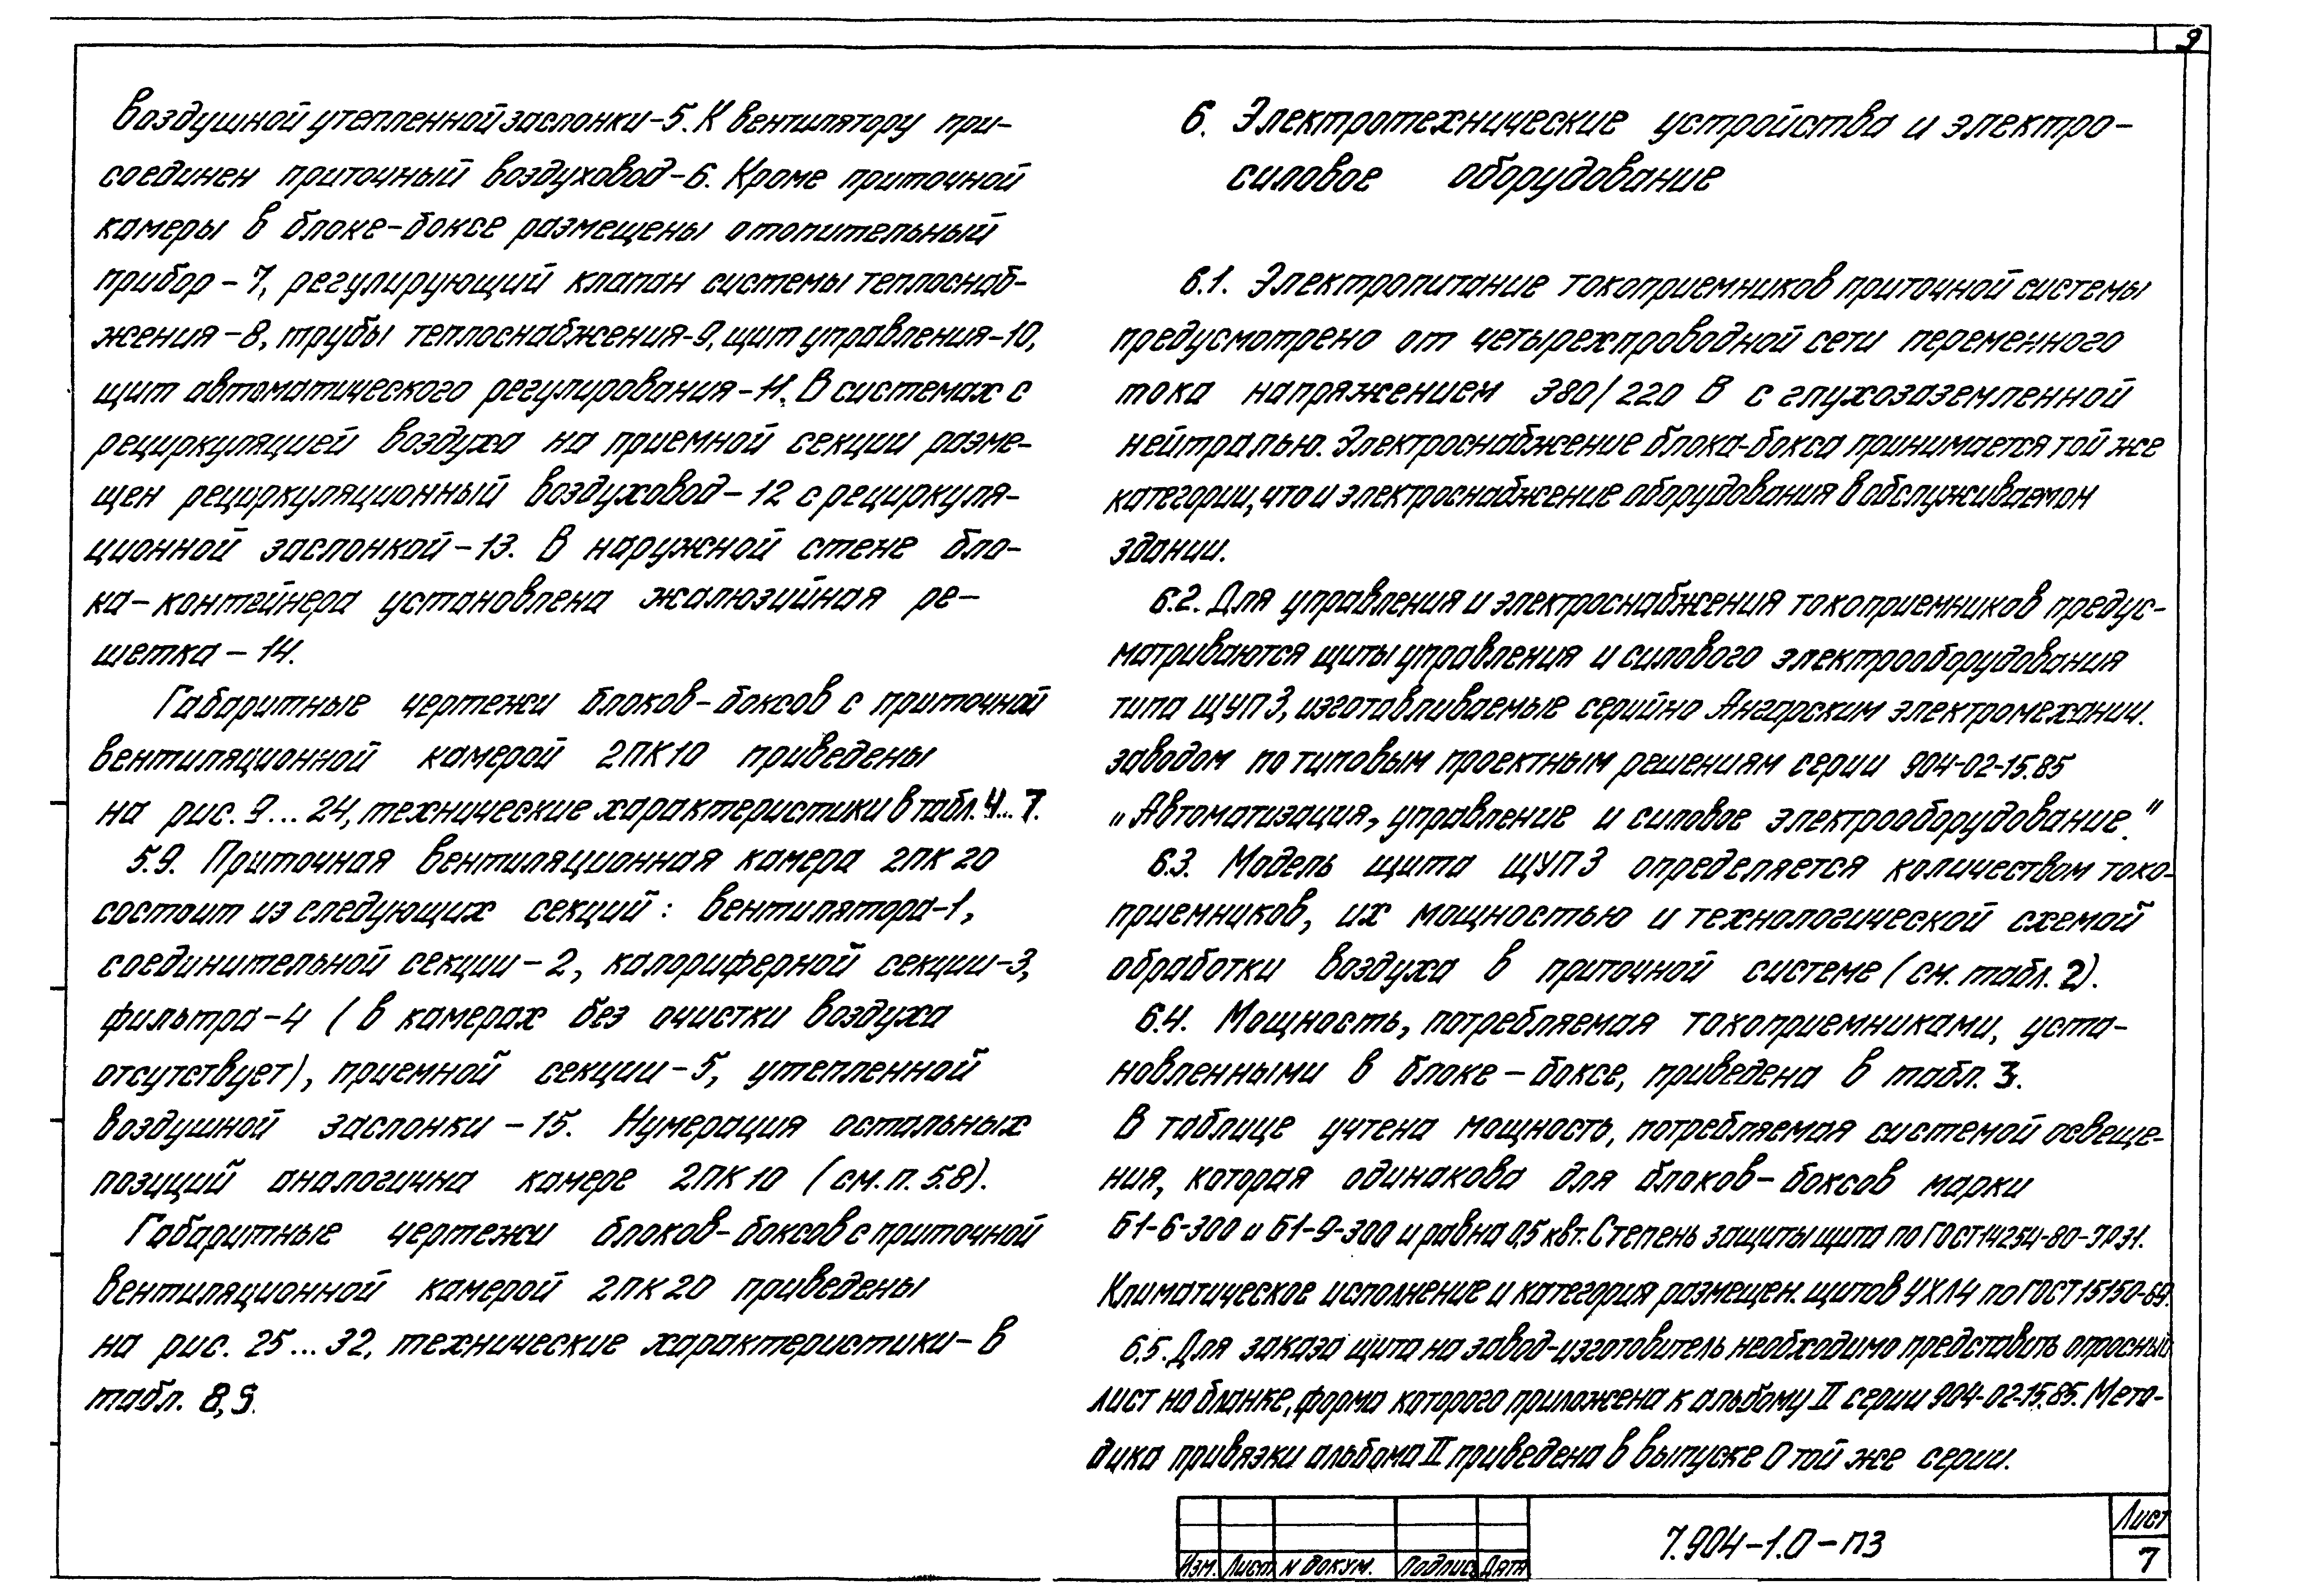 9
воздушной утепленной заслонки-5. К вентилятору при-
соединен приточный воздуховод-6. Кроме приточной
камеры в блоке-боксе размещены отопительный
прибор-7, регулирующий клапан системы теплоснаб-
жения-8, трубы теплоснабжения-9, щит управления-10,
щит автоматического регулирования-11. В системах с
рециркуляцией воздуха на приемной секции разме-
щен рециркуляционный воздуховод-12 с рециркуля-
ционной заслонкой-13. В наружной стене бло-
ка-контейнера установлена жалюзийная ре-
шетка-14.
Габаритные чертежи блоков-боксов с приточной
вентиляционной камерой 2ПК10 приведены
на рис. 9...24, технические характеристики в табл. 4...7.
5.9. Приточная вентиляционная камера 2ПК20
состоит из следующих секций: вентилятора-1,
соединительной секции-2, калориферной секции-3,
фильтра-4 (в камерах без очистки воздуха
отсутствует), приемной секции-5, утепленной
воздушной заслонки-15. Нумерация остальных
позиций аналогична камере 2ПК10 (см. п. 5.8).
Габаритные чертежи блоков-боксов с приточной
вентиляционной камерой 2ПК20 приведены
на рис. 25...32, технические характеристики-в
табл. 8,9.
6. Электротехнические устройства и электро-
силовое оборудование
6.1. Электропитание токоприемников приточной системы
предусмотрено от четырехпроводной сети переменного
тока напряжением 380/220 В с глухозаземленной
нейтралью. Электроснабжение блока-бокса принимается той же
категории, что и электроснабжение оборудования в обслуживаемом
здании.
6.2. Для управления и электроснабжения токоприемников предус-
матриваются щиты управления и силового электрооборудования
типа ЩУП3, изготавливаемые серийно Ангарским электромеханич.
заводом по типовым проектным решениям серии 904-02-15.85
„Автоматизация, управление и силовое электрооборудование."
6.3. Модель щита ЩУП3 определяется количеством токо-
приемников, их мощностью и технологической схемой
обработки воздуха в приточной системе (см. табл. 2).
6.4. Мощность, потребляемая токоприемниками, уста-
новленными в блоке-боксе, приведена в табл. 3.
В таблице учтена мощность, потребляемая системой освеще-
ния, которая одинакова для блоков-боксов марки
Б1-6-300 и Б1-9-300 и равна 0,5 квт. Степень защиты щита по ГОСТ 14254-80-JP31.
Климатическое исполнение и категория размещен. щитов УХЛ4 по ГОСТ 15150-69.
6.5. Для заказа щита на завод-изготовитель необходимо представить опросный
лист на бланке, форма которого приложена к альбому II серии 904-02-15.85. Мето-
дика привязки альбома II приведена в выпуске 0 той же серии.
Изм. Лист N докум. Подпись Дата
7.904-1.0-ПЗ
Лист
7